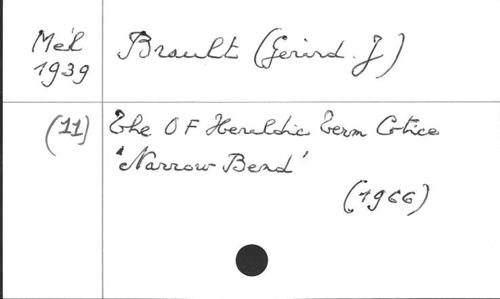 Mél
1939
Brault (Gerard. J)
(11)
The OF Heraldic Term Cotice
'Narrow Bend'
(1966)